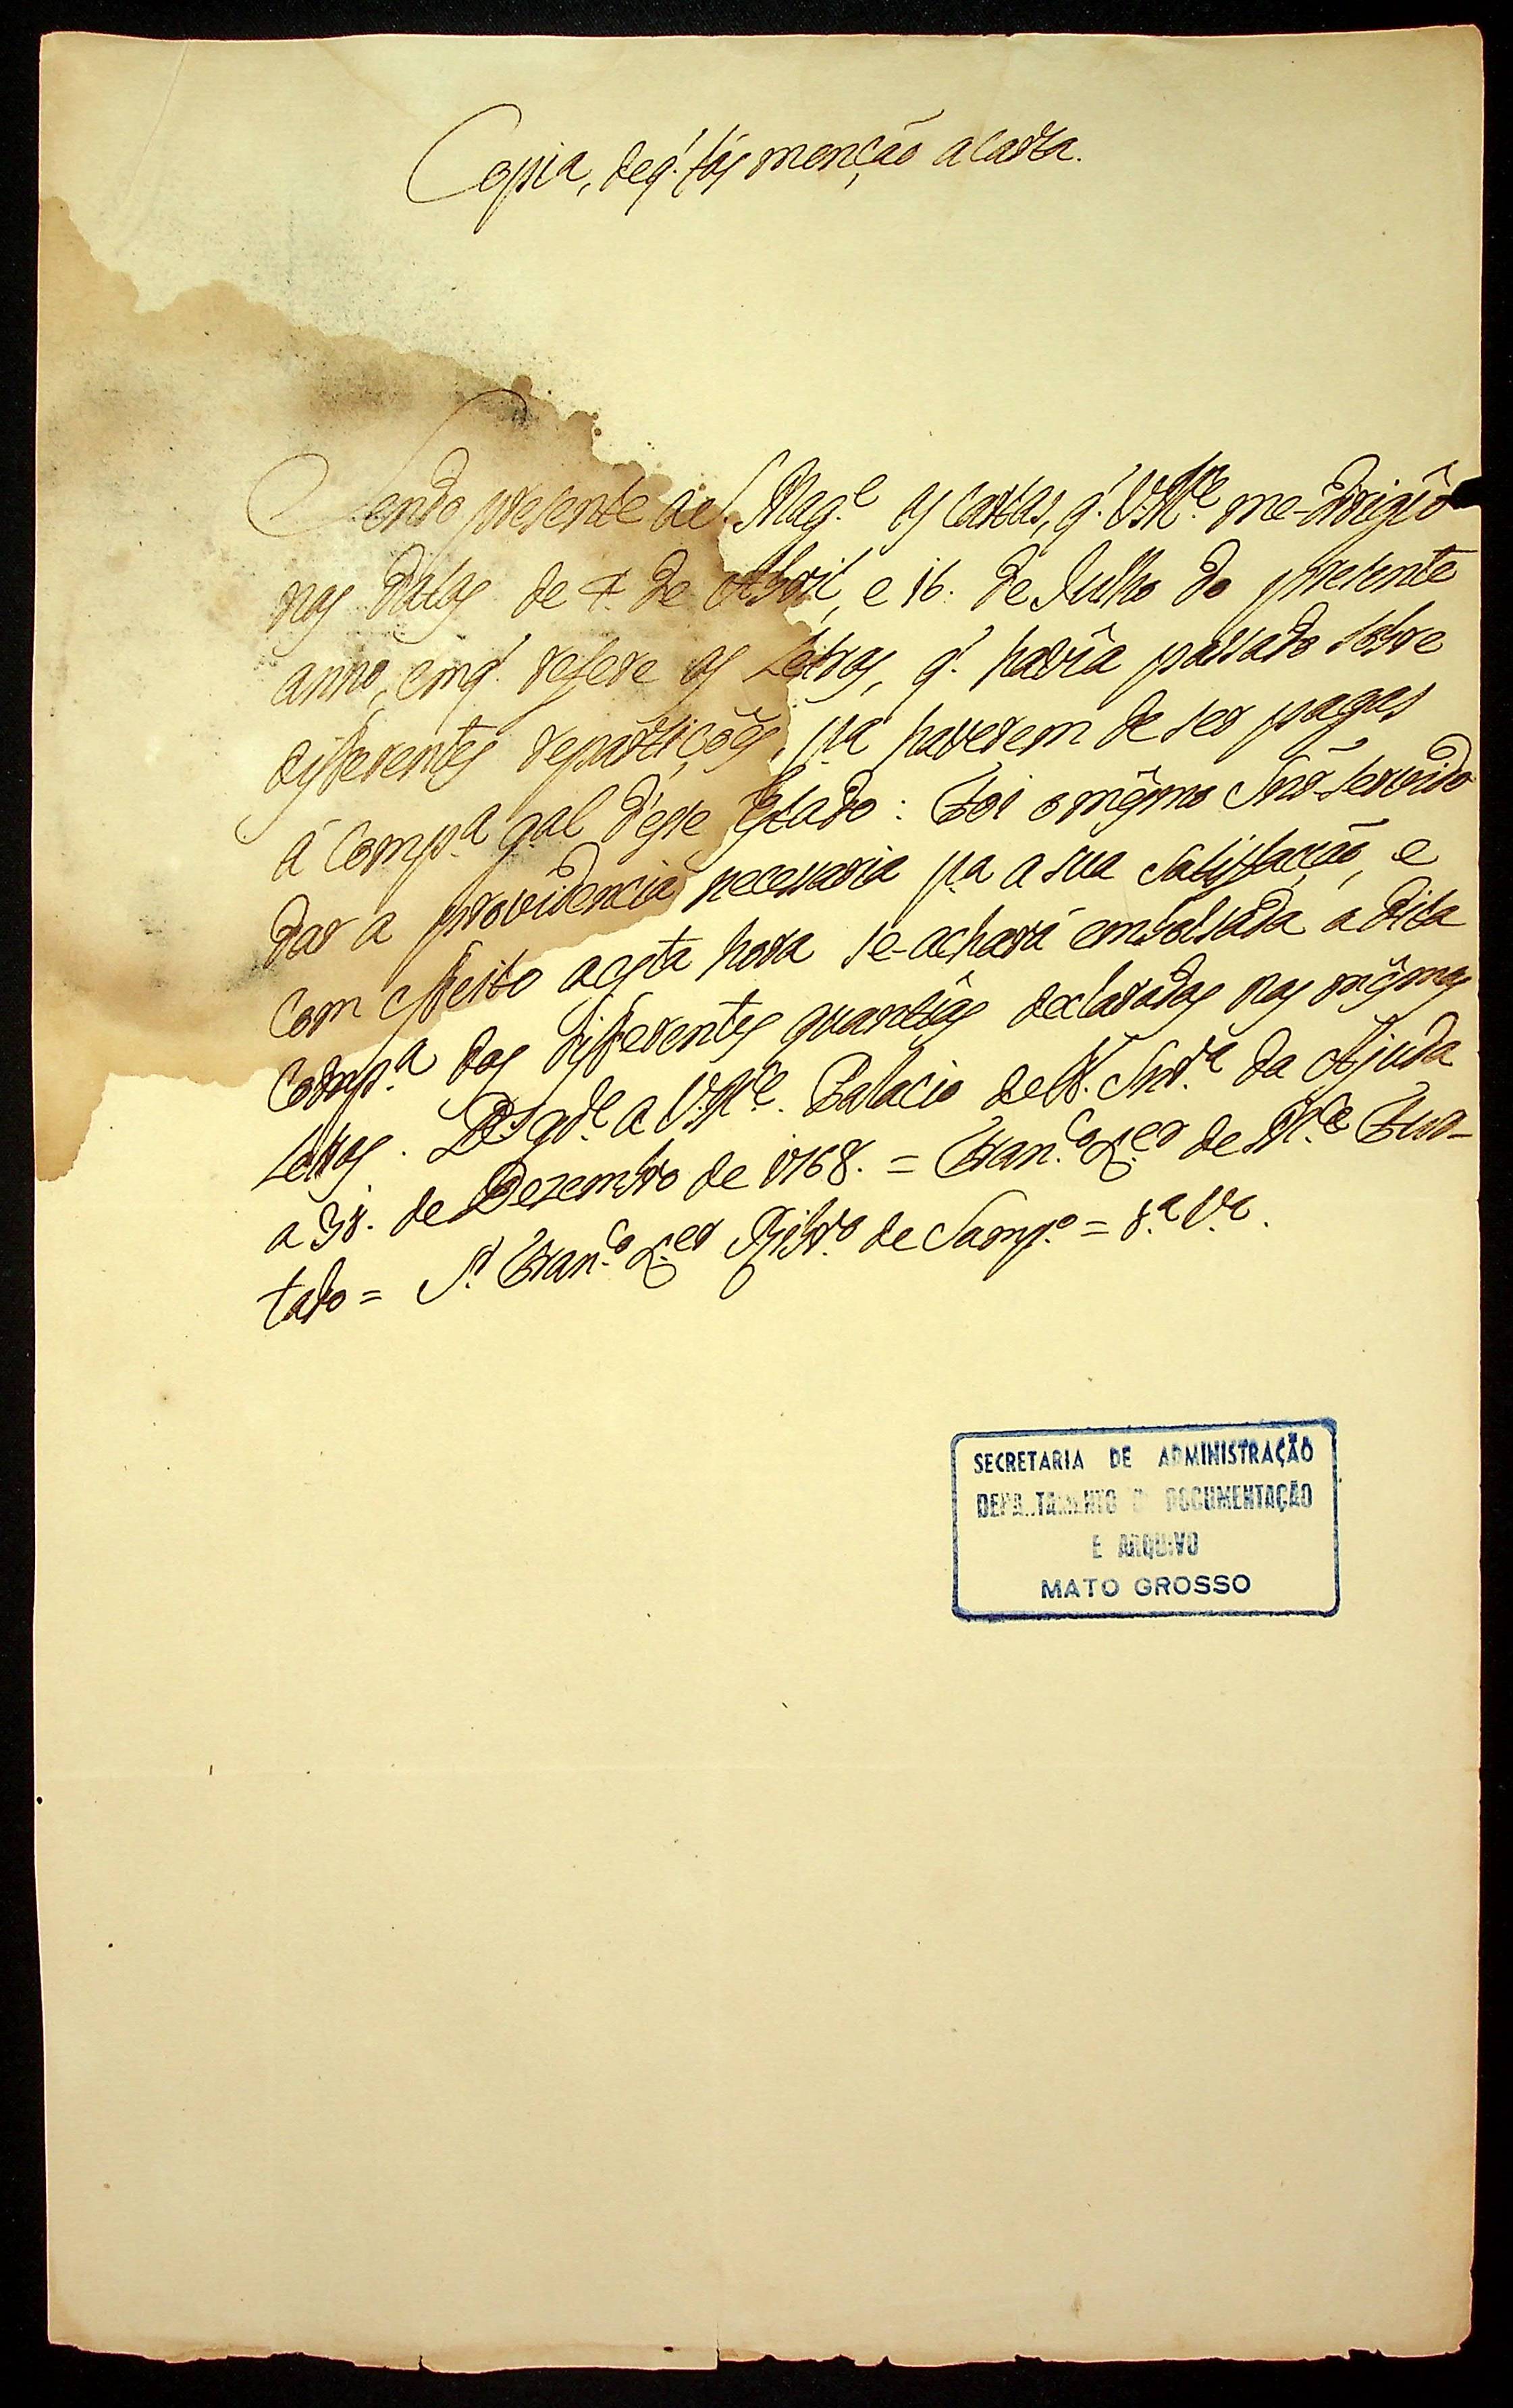 Copia, deq.' fás menção a carta.
Sendo presente a S. Mag.e as cartas, q.' V.M.ce me-dirigîo
nas datas de 4. de Abril, e 16. de Julho do presente
anno, emq.' refere as Letras, q.' havîa passado sobre
differentes repartiçoẽs, p.a haverem de ser pagas
á Comp.a g.al d'esse Estado: Foi o mêsmo Snr servido
dar a providencia necessaria p.a a sua satisfacção, e
com effeito a esta hora se-achará embolsada a dita
Comp.a das differentes quantîas declaradas nas mêsmas
Letras. D.s g.de a V.M.ce. Palacio de N. Snr.a da Ajuda
a de Dezembro de 1768. = Fran.co X.er de M.ça Fur-
tado = S.r Fran.co X.er Ribr.o de Samp.o =
SECRETARIA DE ADMINISTRAÇÃO
DEPARTAMENTO DE DOCUMENTAÇÃO
E ARQUIVO
MATO GROSSO